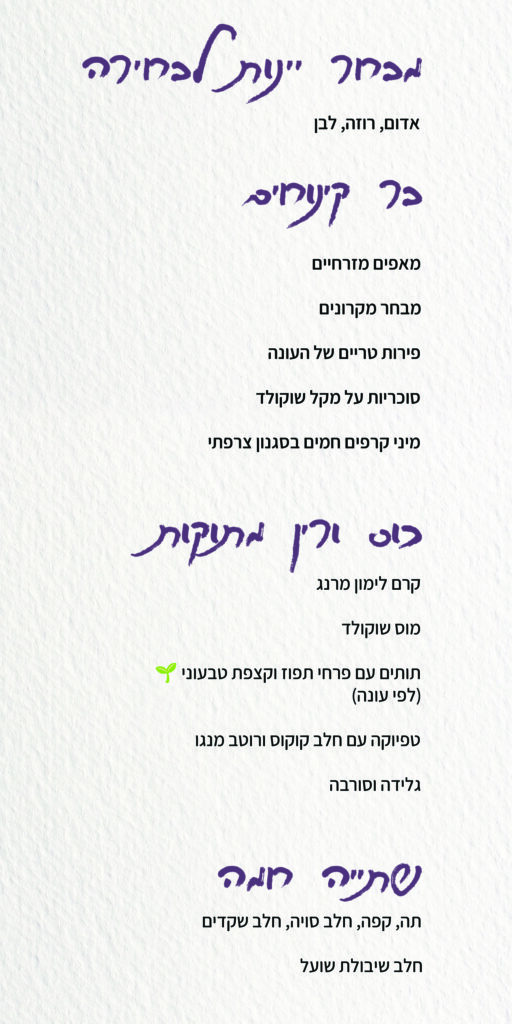 מבחר יינות לבחירה
אדום, רוזה, לבן
בר קינוחים
מאפים מזרחיים
מבחר מקרונים
פירות טריים של העונה
סוכריות על מקל שוקולד
מיני קרפים חמים בסגנון צרפתי
כוס ורין מתוקות
קרם לימון מרנג
מוס שוקולד
תותים עם פרחי תפוז וקצפת טבעוני 🌱
(לפי עונה)
טפיוקה עם חלב קוקוס ורוטב מנגו
גלידה וסורבה
נשתייה חמה
תה, קפה, חלב סויה, חלב שקדים
חלב שיבולת שועל